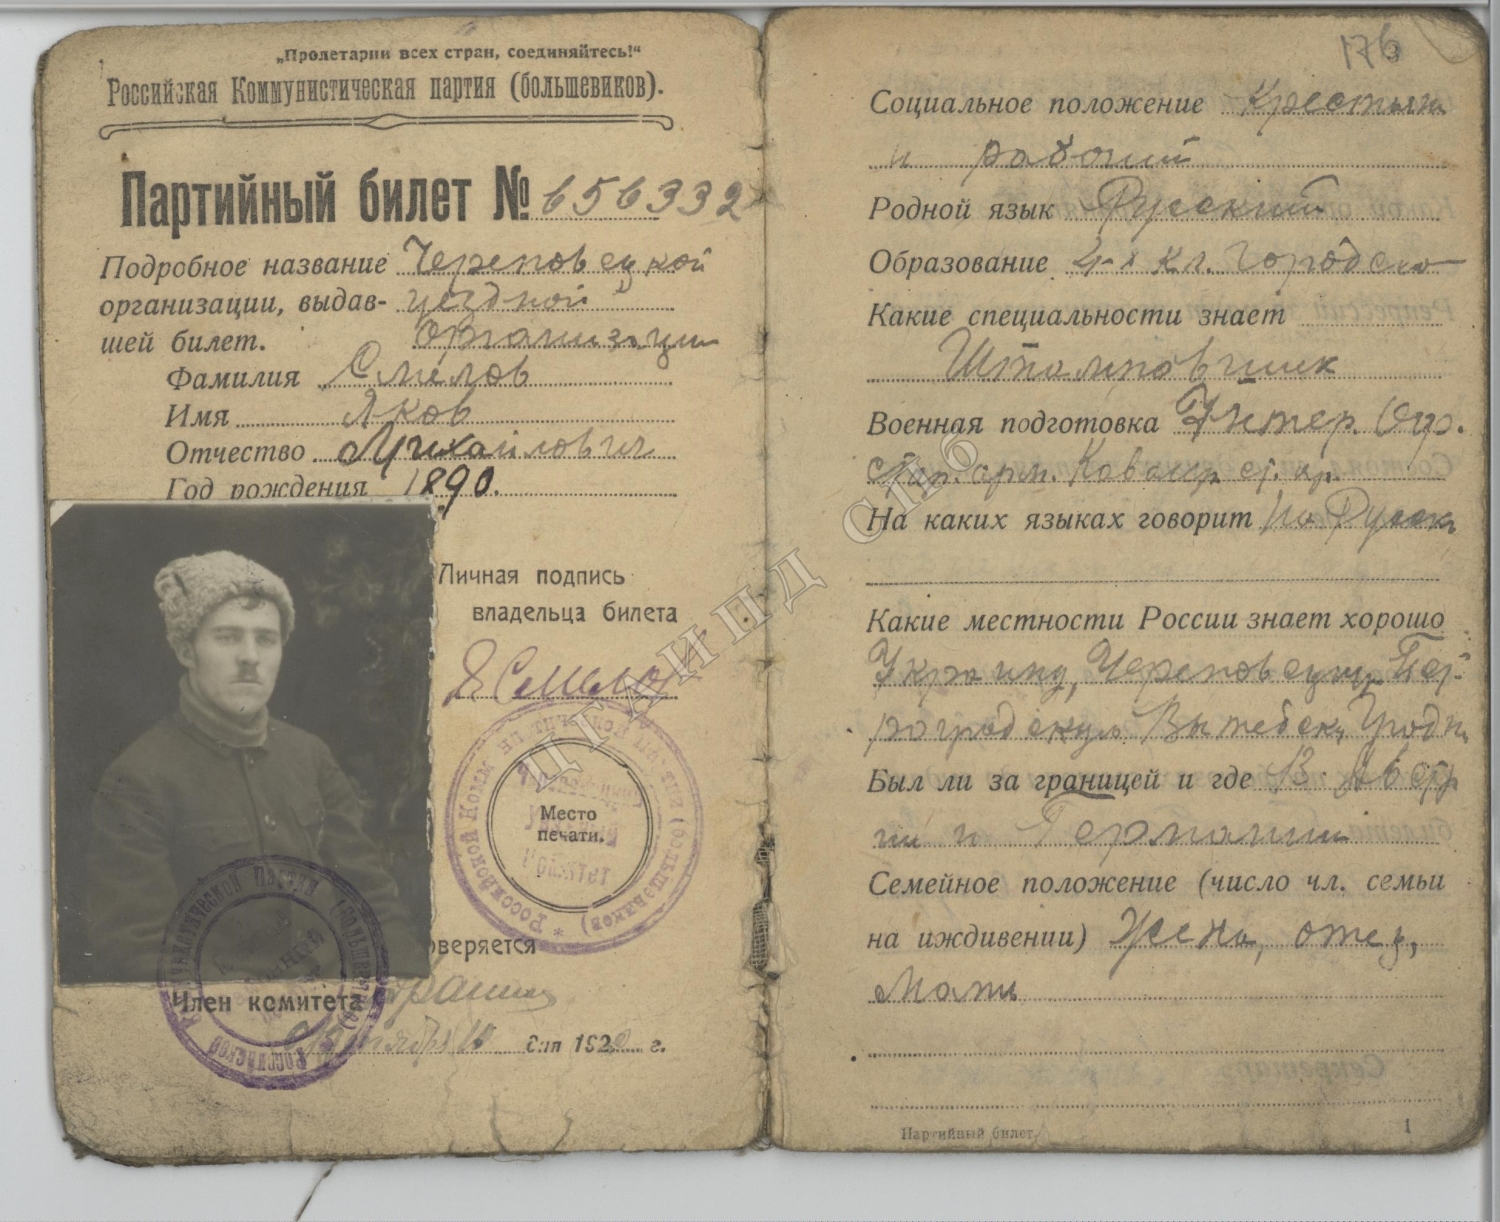 „Пролетарии всех стран, соединяйтесь!“
Российская Коммунистическая партия (большевиков).
Партийный билет № 656332
Подробное название Череповецкой
организации, выдав- уездной
шей билет. Организации
Фамилия Смелов
Имя Яков
Отчество Михайлович
Год рождения 1890.
Личная подпись
владельца билета
Я Смелов
Место
печати.
оверяется
Член комитета
дня 1920 г.
176
Социальное положение Крестьян
и рабочий
Родной язык Русский
Образование 4-х кл. Городско
Какие специальности знает
Штамповщик
Военная подготовка Унтер. Оф.
Стар. арм. Кавалер
На каких языках говорит по Русск
Какие местности России знает хорошо
Украину, Череповецку, Пет
роградскую Витебск, Гродн
Был ли за границей и где В Австр
ии и Германии
Семейное положение (число чл. семьи
на иждивении) Жена, отец,
Мать
Партийный билет.
1
ЦГАИПД СПб